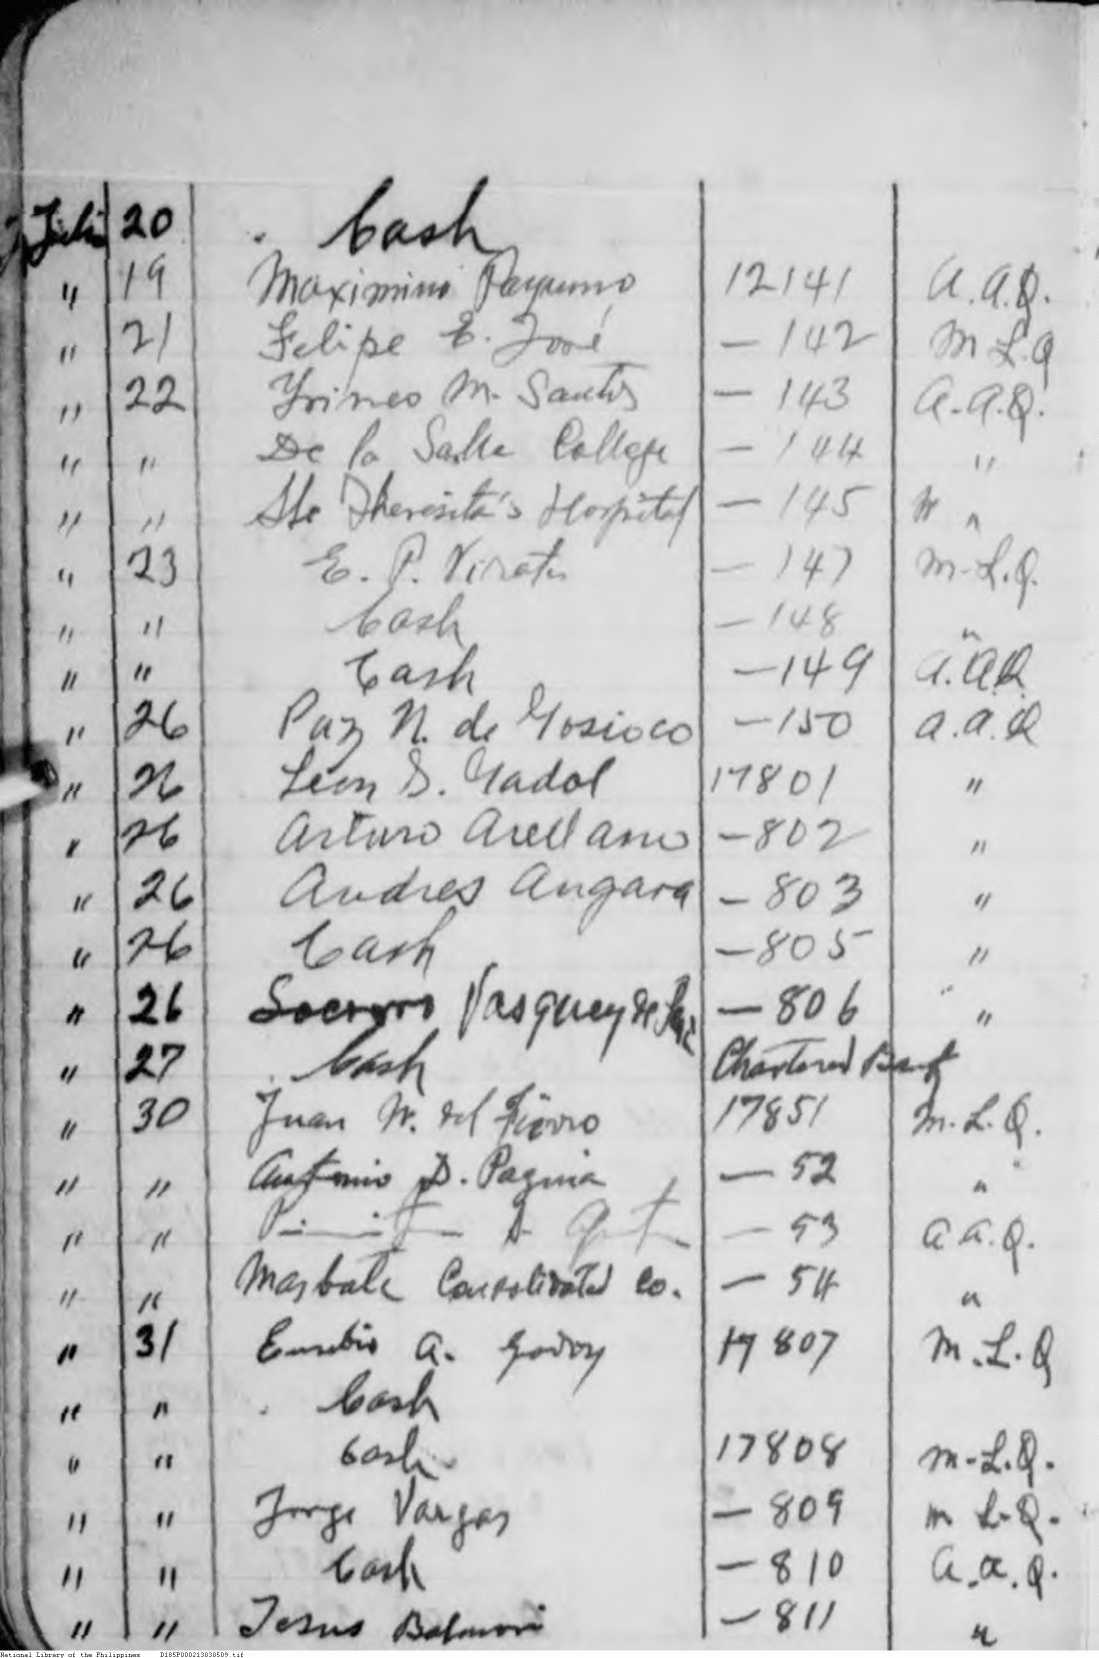 Julio 20 . Cash
" 19 Maximino Paguino 12141 A.A.Q.
" 21 Felipe E. José — 142 M L Q
" 22 Yrineo M. Santos — 143 A.A.Q.
" " De la Salle College — 144 "
" " Ste Theresita's Hospital — 145 " "
" 23 E. P. Virata — 147 M.L.Q.
" " Cash — 148 "
" " Cash — 149 A.A.Q.
" 26 Paz N. de Gosioco — 150 A.A.Q
" 26 Leon S. Gadol 17801 "
" 26 Arturo Arellano — 802 "
" 26 Andres Angara — 803 "
" 26 Cash — 805 "
" 26 Socorro Vasquez de — 806 "
" 27 . Cash Chartered Bank
" 30 Juan W. del Fierro 17851 M.L.Q.
" " Antonio D. Paguia — 52 "
" " — 53 A A.Q.
" " Masbate Consolidated Co. — 54 "
" 31 Eusebio A. Godoy 17807 M.L.Q
" " . Cash
" " Cash 17808 M.L.Q.
" " Jorge Vargas — 809 M L.Q.
" " Cash — 810 A.A.Q.
" " Jesus Balmori — 811 "
National Library of the Philippines D185P000213030509.tif